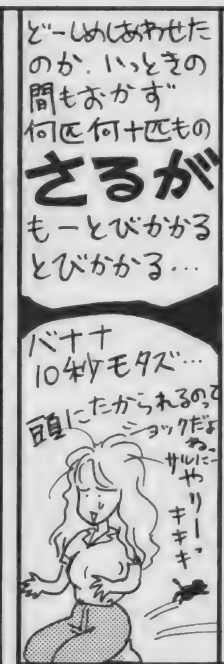 どーしめしあわせた
のか、いっときの
間もおかず
何匹何十匹もの
さるが
もーとびかかる
とびかかる…
バナナ
10秒モタズ…
頭にたかられるのって
ショックだよねっ
サルにー
やりーっ
キキキ